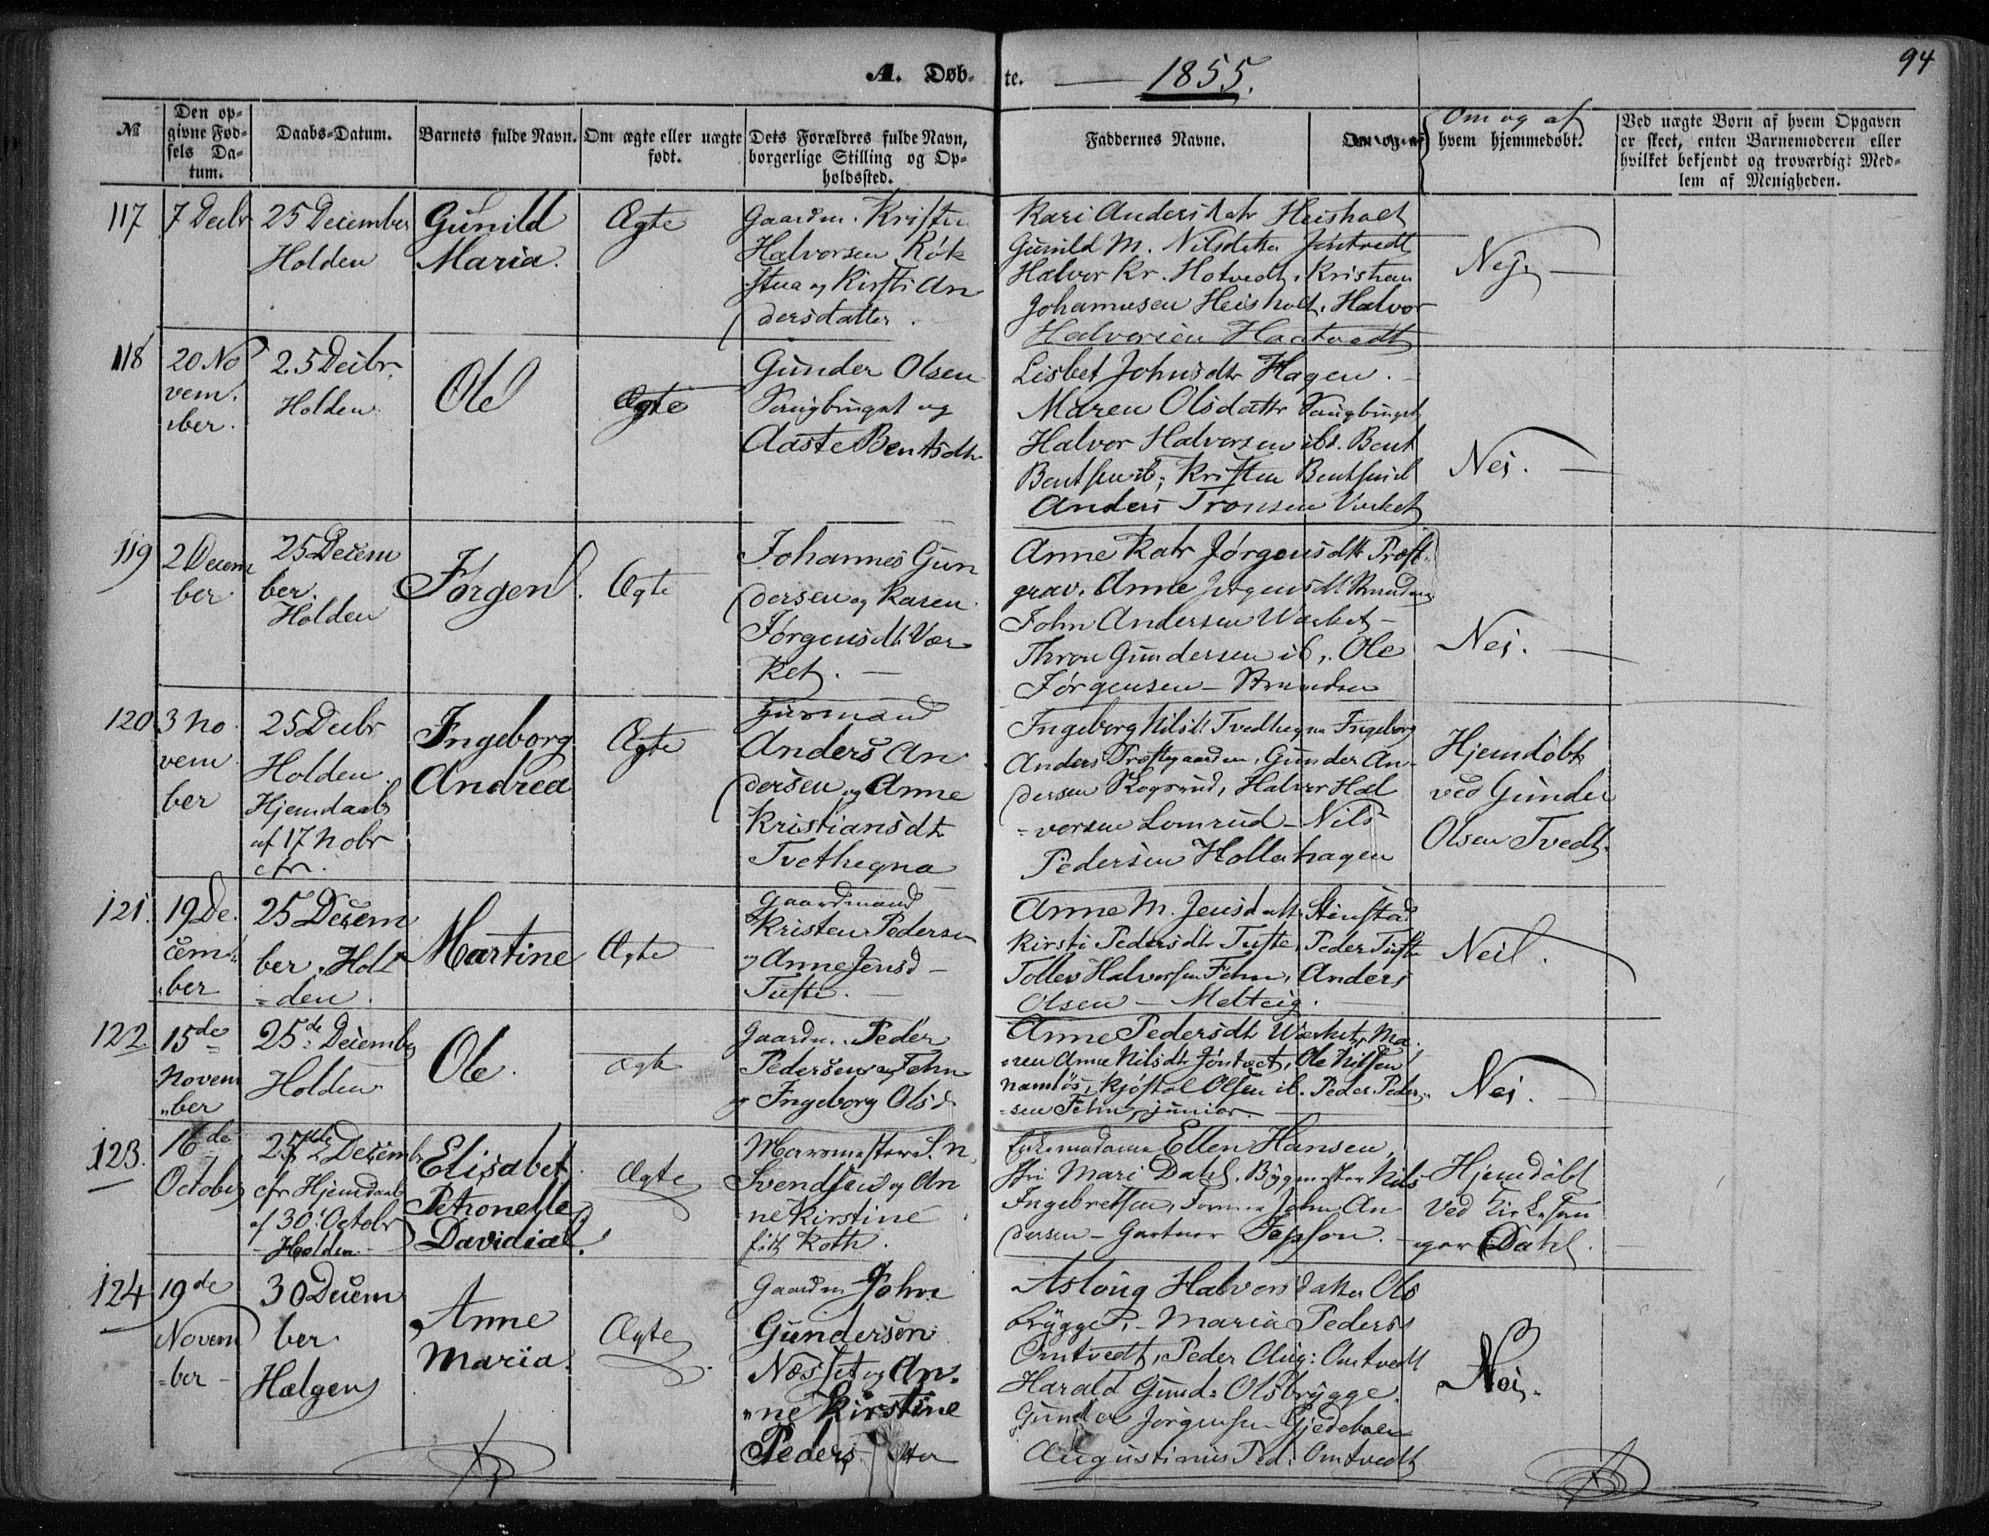 A. Døb-te. — 1855.
94
№
Den op-
givne Fød-
sels Da-
tum.
Daabs-Datum.
Barnets fulde Navn.
Om ægte eller uægte
født.
Dets Forældres fulde Navn,
borgerlige Stilling og Op-
holdssted.
Faddernes Navne.
Om og af
hvem hjemmedøbt.
Ved uægte Børn af hvem Opgaven
er skeet, enten Barnemoderen eller
hvilket bekjendt og troværdigt Med-
lem af Menigheden.
117
7 Decbr
25 December
Holden
Gunild
Maria.
Ægte
Gaardm. Kristen
Halvorsen Røk
stua og Kirsti An
dersdatter.
Kari Andersdatr Heisholt
Gunild M. Nilsdatter Jøntvedt
Halvor Kr. Hotvedt, Kristian
Johannesen Heisholt, Halvor
Halvorsen Haatvedt
Nej. —
118
20 No
vem.
ber.
25 Decbr.
Holden
Ole
Ægte
Gunder Olsen
og
Aaste Bentsdtr
Lisbet Johnsdtr Hagen. —
Maren Olsdattr
Halvor Halvorsen ibd. Bent
Bentsen ib, Kristen Bentsen ib
Anders Tronsen Verket
Nei. —
119
2 Decem
ber
25 Decem
ber.
Holden
Jørgen.
Ægte
Johannes Gun
dersen og Karen
Jørgensdtr Vær
ket. —
Anne Katr Jørgensdtr Præst-
grav. Anne Jørgensdtr
John Andersen Værket —
Thron Gundersen ib, Ole
Jørgensen —
Nei. —
120
3 No
vem
ber
25 Decbr
Holden.
Hjemdaab
af 17 Nobr
cfr.
Ingeborg
Andrea
Ægte
Husmand
Anders An
dersen og Anne
Kristiansdtr
Tvethegna
Ingeborg Nilsdtr Tvedhegna Ingeborg
Anders Præstegaarden, Gunder An-
dersen Rogsrud, Halvor Hal
-vorsen Lomrud — Nils
Pedersen Hollahagen
Hjemdøbt
ved Gunder
Olsen Tvedt.
121.
19 De.
cem
ber
25 Decem
ber. Hol
=den.
Martine
Ægte
Gaardmand
Kristen Pedersen
og Anne Jensd —
Tufte. —
Anne M. Jensdatter Stenstad
Kirsti Pedersdtr Tufte, Peder Tufte
Tollev Halvorsen Fehn, Anders
Olsen — Melteig.
Nei.
122
15de
Novem
ber
25de December
Holden
Ole.
Ægte
Gaardm. Peder
Pedersen Fehn
og Ingeborg Olsd
Anne Pedersdtr Værket, Ma.
ren Anne Nilsdtr Jøntvet, Ole Nilsen
Namløs, Kjøstol Olsen ib. Peder Peder-
sen Fehn, junior. —
Nei. —
123.
16de
October
25de Decembr
cfr Hjemdaab
af 30. Octobr
— Holden —
Elisabet
Petronelle
Davidia.
Ægte
S. N.
Svendsen og An
ne Kirstine
født Koth.
Enkemadame Ellen Hansen,
Fru Mari Dahl, Bygmester Nils
Ingebretsen, Former John An
dersen — Gartner Jepson. —
Hjemdøbt
Ved Kirkesan
ger Dahl.
124
19de
Novem
=ber —
30 Decem
ber
Hælgen
Anne
Maria.
Ægte
Gaardm John
Gundersen
Næsset og An.
ne Kirstine
Peders
Aslaug Halvorsdatter Ols
brygge, — Maria Peders
Omtvedt, Peder Aug: Omtvedt
Harald Gund: Olsbrygge.
Gunder Jørgensen Gjedeboen
Augustinus Ped: Omtvedt
Nei.